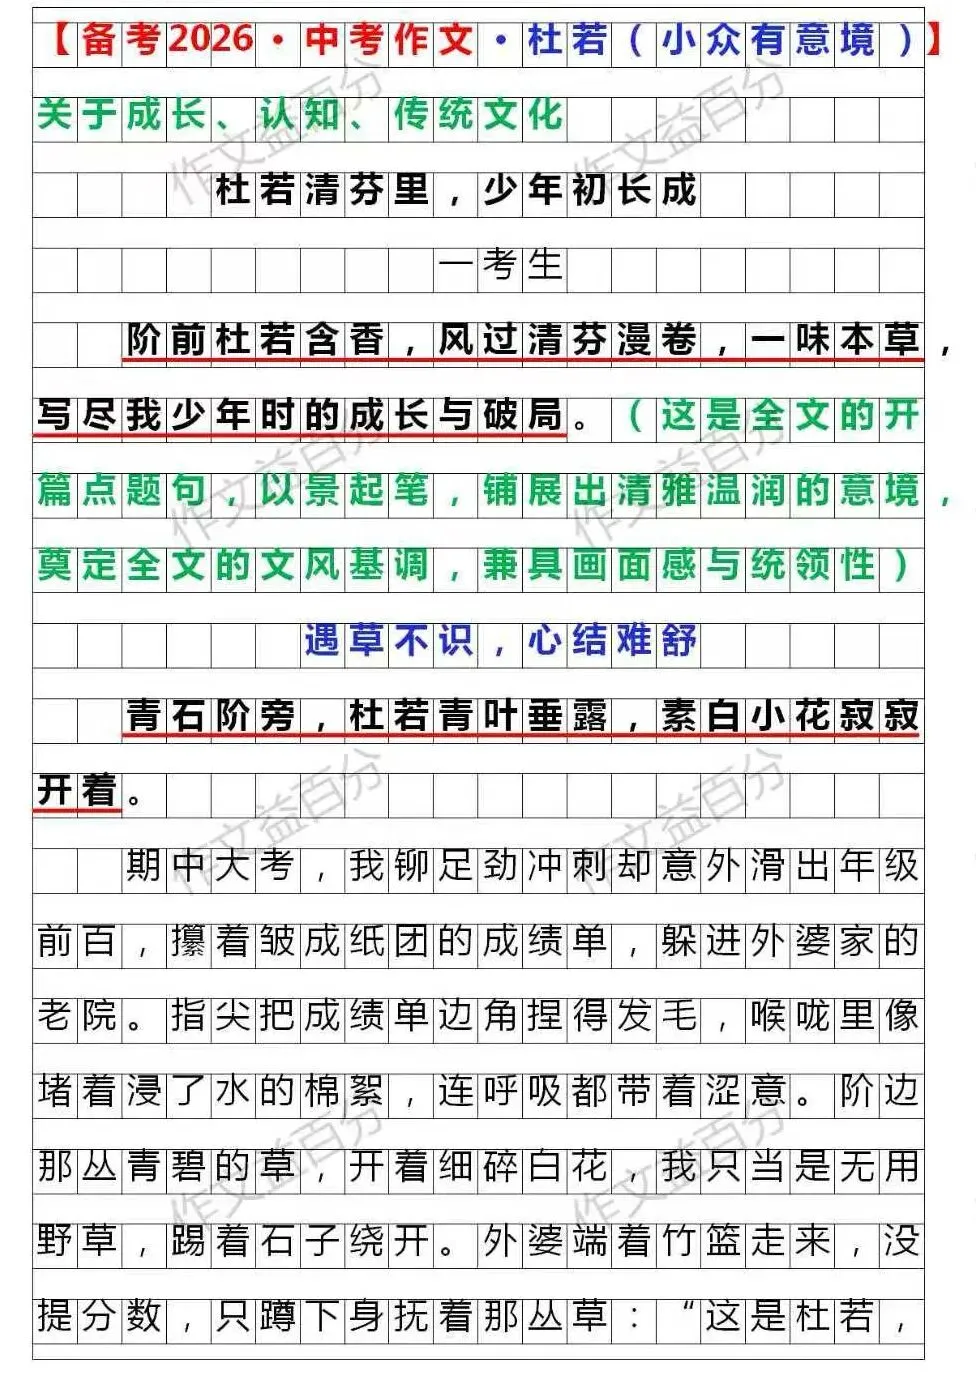 【备考2026·中考作文·杜若(小众有意境)】
关于成长、认知、传统文化
杜若清芬里，少年初长成
一考生
阶前杜若含香，风过清芬漫卷，一味本草，
写尽我少年时的成长与破局。(这是全文的开
篇点题句，以景起笔，铺展出清雅温润的意境，
奠定全文的文风基调，兼具画面感与统领性)
遇草不识，心结难舒
青石阶旁，杜若青叶垂露，素白小花寂寂
开着。
期中大考，我铆足劲冲刺却意外滑出年级
前百，攥着皱成纸团的成绩单，躲进外婆家的
老院。指尖把成绩单边角捏得发毛，喉咙里像
堵着浸了水的棉絮，连呼吸都带着涩意。阶边
那丛青碧的草，开着细碎白花，我只当是无用
野草，踢着石子绕开。外婆端着竹篮走来，没
提分数，只蹲下身抚着那丛草：“这是杜若，
作文益百分
作文益百分
作文益百分
作文益百分
作文益百分
作文益百分
作文益百分
作文益百分